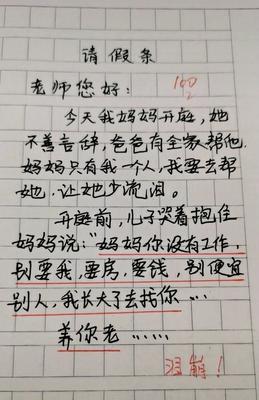 请假条
老师您好：
100
今天我妈妈开庭，她
不善言辞，爸爸有全家帮他，
妈妈只有我一个人，我要去帮
她，让她少流泪。
开庭前，儿子哭着抱住
妈妈说："妈妈你没有工作，
别要我，要房，要钱，别便宜
别人，我长大了去找你…
养你老……
泪崩！